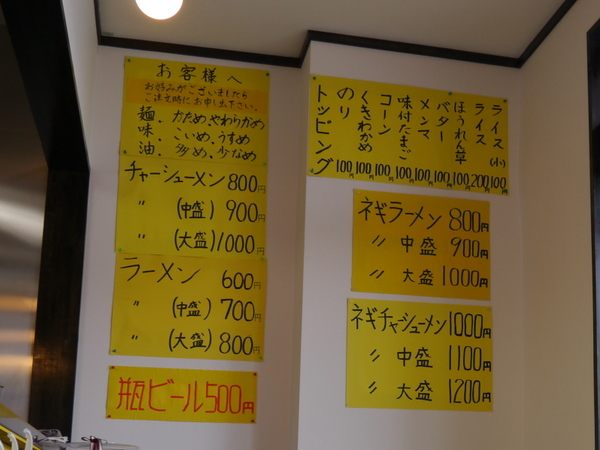 お客様へ
お好みがございましたら
ご注文時にお申し出下さい。
麺．かため やわらかめ
味　こいめ、うすめ
油．多め、少なめ
チャーシューメン 800円
〃 (中盛) 900円
〃 (大盛) 1000円
ラーメン 600円
〃 (中盛) 700円
〃 (大盛) 800円
瓶ビール500円
トッピング
のり 100円
くきわかめ 100円
コーン 100円
味付たまご 100円
メンマ 100円
バター 100円
ほうれん草 100円
ライス 200円
ライス(小) 100円
ネギラーメン 800円
〃 中盛 900円
〃 大盛 1000円
ネギチャーシューメン 1000円
〃 中盛 1100円
〃 大盛 1200円